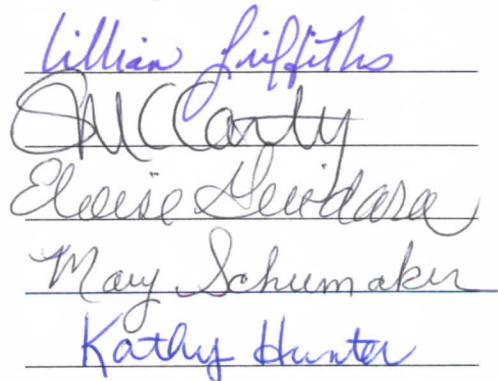 Lillian Griffiths
McCarty
Eloise
Mary Schumaker
Kathy Hunter